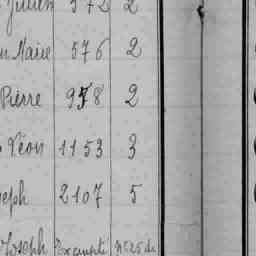 Julien 572 2
Marie 576 2
Pierre 958 2
Léon 1153 3
seph 2107 5
Joseph Exempté N° 25 de